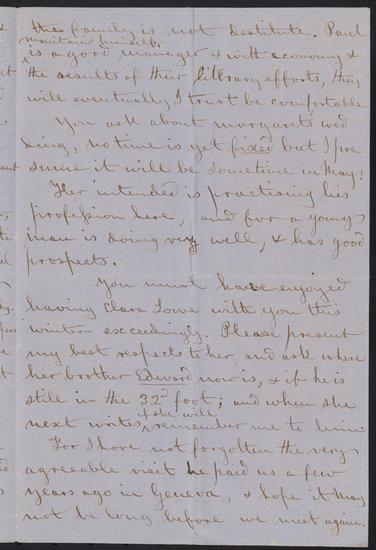 the family is not destitute. Paul
maintains himself &
is a good manager & with economy &
the results of their literary efforts, they
will eventually I trust be comfortable
You ask about Margarets wed
ding, no time is yet fixed but I pre
sume it will be sometime in May.
Her intended is practising his
profession here, and for a young
man is doing very well, & has good
prospects.
You must have enjoyed
having Clara Lowe with you this
winter exceedingly. Please present
my best respects to her, and ask where
her brother Edward now is, & if he is
still in the 32d foot; and when she
if she will
next writes, remember me to him
For I have not forgotten the very
agreeable visit he paid us a few
years ago in Geneva, & hope it may
not be long before we meet again.